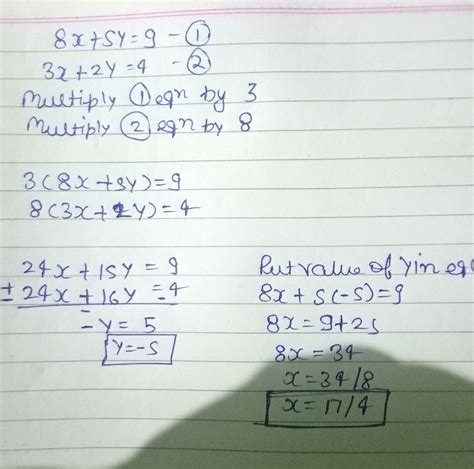 8x+5y=9 - ①
3x+2y=4 - ②
Multiply ① eqn by 3
Multiply ② eqn by 8
3(8x+5y)=9
8(3x+2y)=4
24x+15y=9
± 24x+16y=4
- -
-y=5
y=-5
Put value of y in eq
8x+5(-5)=9
8x=9+25
8x=34
x=34/8
x=17/4